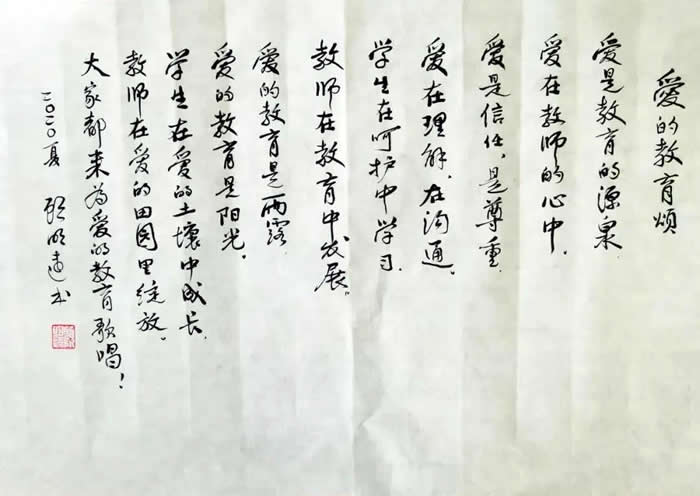 爱的教育颂
爱是教育的源泉
爱在教师的心中。
爱是信任，是尊重
爱在理解、在沟通。
学生在呵护中学习
教师在教育中发展。
爱的教育是雨露
爱的教育是阳光。
学生在爱的土壤中成长
教师在爱的田园里绽放。
大家都来为爱的教育歌唱！
二〇二〇夏 顾明远书